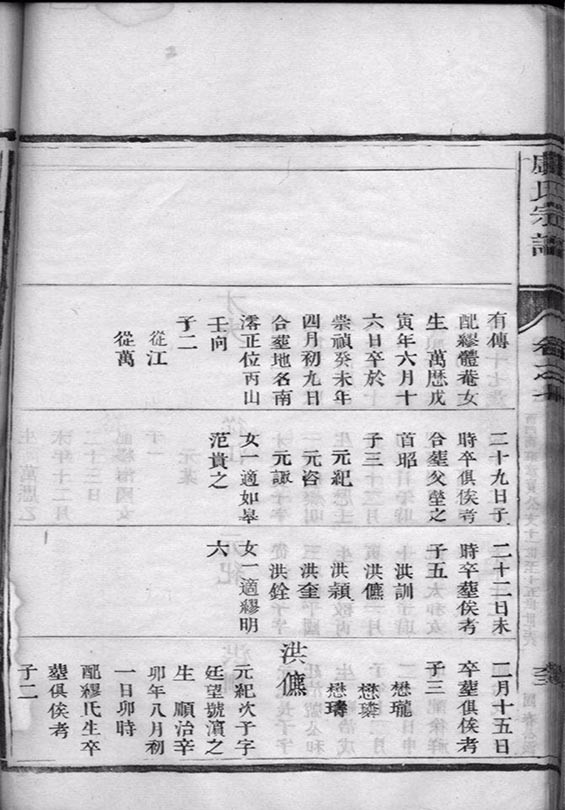 盧氏宗譜
卷之
有傳
配繆體菴女
生萬厯戊
寅年六月十
六日卒於
崇禎癸未年
四月初九日
合塟地名南
澪正位丙山
壬向
子二
從江
從萬
二十九日子
時卒俱俟考
合塟父塋之
首昭
子三
元紀
元咨
元諏
女一適如皋
范貴之
二十二日未
時卒塟俟考
子五
洪訓
洪儦
洪穎
洪奎
洪銓
女一適繆明
六
二月十五日
卒塟俱俟考
子三
懋瓏
懋璘
懋璹
洪儦
元紀次子字
廷望號濵之
生順治辛
卯年八月初
一日卯時
配繆氏生卒
塟俱俟考
子二